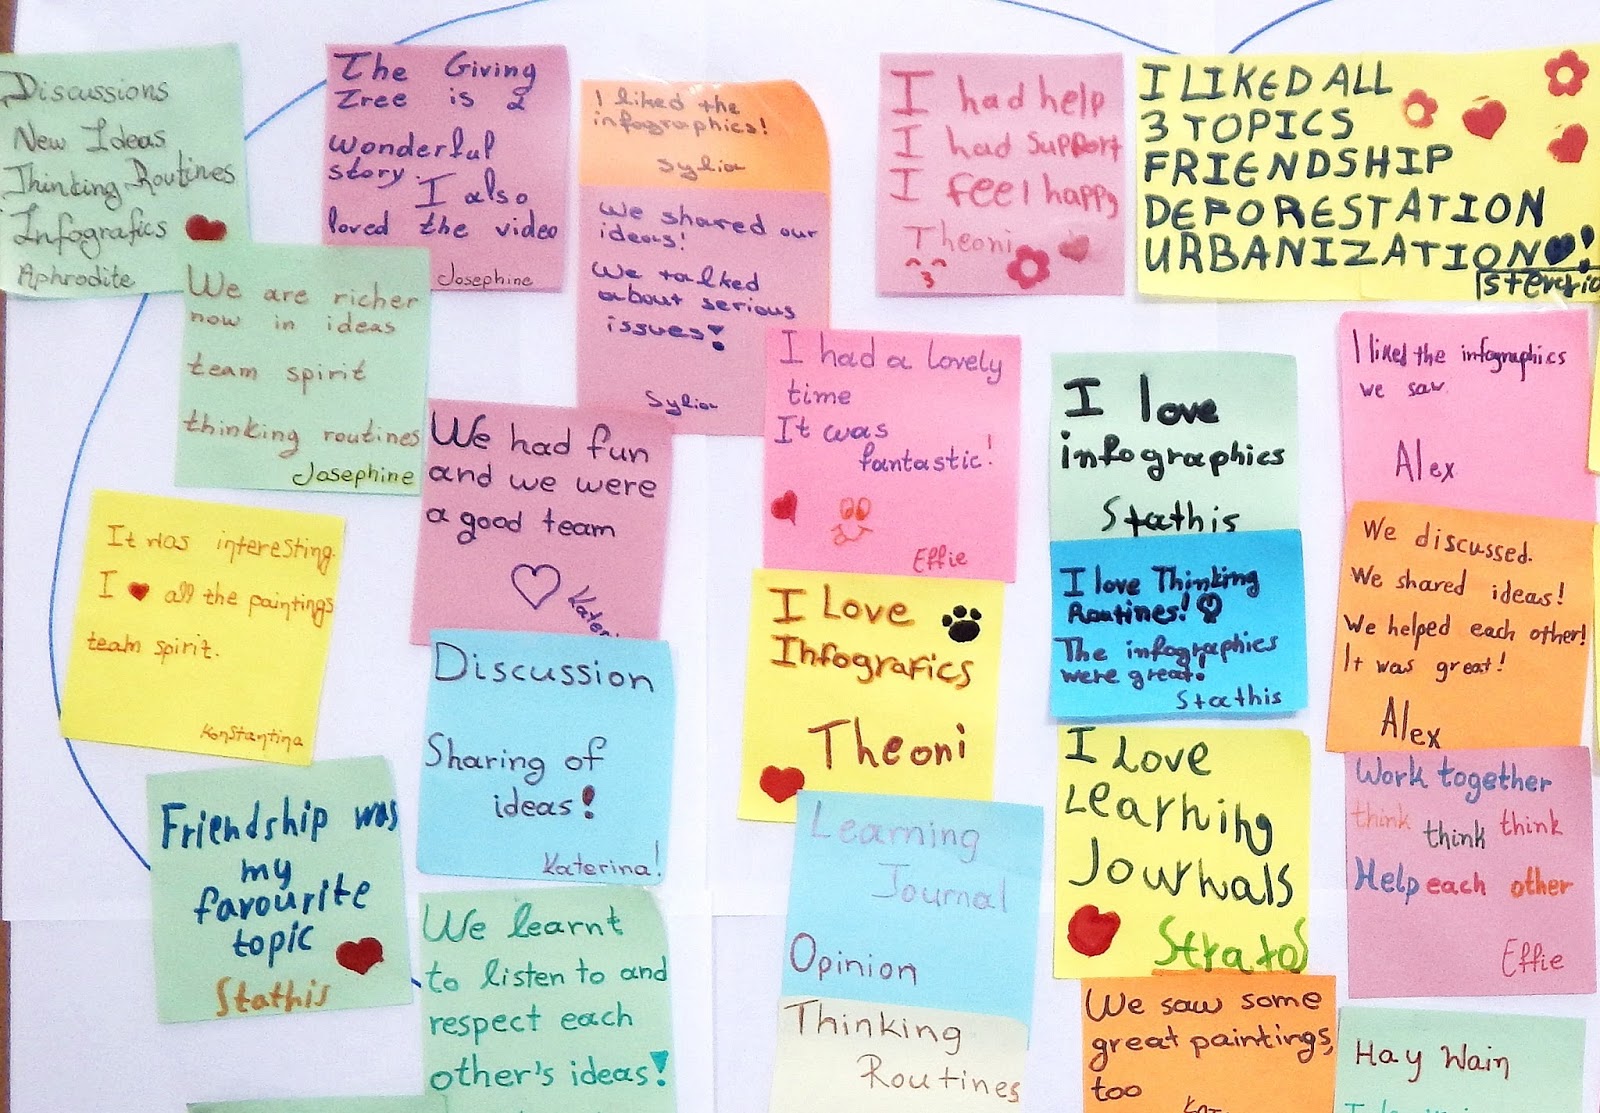 Discussions
New Ideas
Thinking Routines
Infografics
Aphrodite
The Giving
Tree is a
wonderful
story.
I also
loved the video
Josephine
I liked the
infographics!
Sylia
We shared our
ideas!
We talked
about serious
issues!
Sylia
I had help
I had support
I feel happy
Theoni
I LIKED ALL
3 TOPICS
FRIENDSHIP
DEFORESTATION
URBANIZATION!
We are richer
now in ideas
team spirit
thinking routines
Josephine
We had fun
and we were
a good team
I had a lovely
time
It was
fantastic!
Effie
I love
infographics
Stathis
I liked the infographics
we saw.
Alex
It was interesting.
I ♥ all the paintings
team spirit.
Konstantina
Discussion
Sharing of
ideas!
Katerina!
I Love
Infografics
Theoni
I love Thinking
Routines!
The infographics
were great.
Stathis
We discussed.
We shared ideas!
We helped each other!
It was great!
Alex
Friendship was
my
favourite
topic
Stathis
We learnt
to listen to and
respect each
other's ideas!
Learning
Journal
Opinion
Thinking
Routines
I Love
Learning
Journals
Stratos
Work together
think think think
Help each other
Effie
We saw some
great paintings,
too
Hay Wain